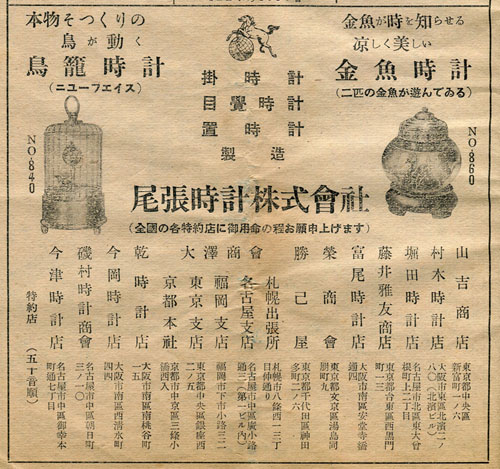 金魚が時を知らせる
涼しく美しい
金魚時計
(二匹の金魚が遊んでゐる)
NO.860
掛時計
目覺時計
置時計
製造
本物そつくりの
鳥が動く
鳥籠時計
(ニユーフエイス)
NO.840
尾張時計株式會社
(全國の各特約店に御用命の程お願申上げます)
山吉商店
東京都中央區新富町一ノ六
村木時計店
大阪市東區北濱二ノ八〇(北濱ビル)
堀田時計店
名古屋市北區東大曾根町一二丁目
藤井雅友商店
東京都台東區西黒門町一三
富尾時計店
大阪市南區安堂寺橋通四
榮商會
東京都文京區湯島同朋町九
勝己屋
東京都千代田區神田多町二ノ六
大澤商會
札幌出張所
札幌市八條西一三丁目仲通り
名古屋支店
名古屋市中區廣小路通三ノ六(第一ビル内)
福岡支店
福岡市下市小路三二
東京支店
東京都中央區銀座西二ノ五
京都本社
京都市中京區三條小橋西入
乾時計店
大阪市南區南桃谷町一五
今岡時計店
大阪市南區西清水町四四
磯村時計商會
名古屋市中區朝日町三ノ一〇
今津時計店
名古屋市中區御幸本町七丁目
特約店(五十音順)